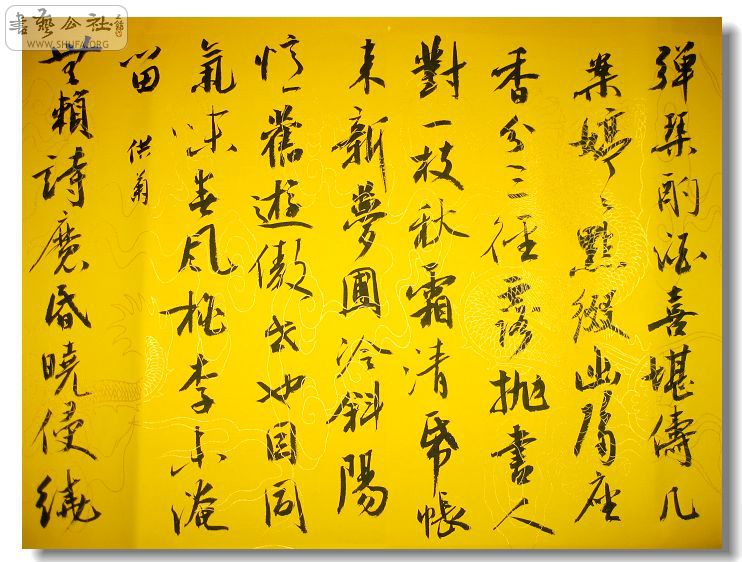 書藝公社
WWW.SHUFA.ORG
彈琴酌酒喜堪儔几
案婷々點綴幽隔座
香分三徑露拋書人
對一枝秋霜清帋帳
来新夢圃冷斜陽
憶舊遊傲世也因同
氣味春風桃李未淹
留
供菊
無賴詩魔昏曉侵繞